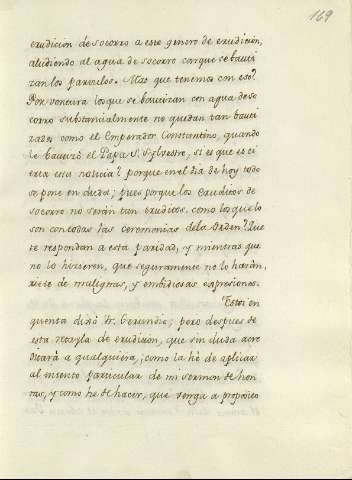 169
erudicion de socorro a este genero de erudicion,
aludiendo al agua de socorro con que se bauti
zan los parvulos. Mas que tenemos con eso?
Por ventura los que se bautizan con agua de so
corro substancialmente no quedan tan bauti
zados como el Emperador Constantino, quando
le bautizó el Papa S. Sylvestre, si es que es ci
erta esta noticia? porque en el dia de hoy todo
se pone en duda; pues porque los eruditos de
socorro no serán tan eruditos, como los que lo
son con todas las ceremonias de la Orden? Que
te respondan a esta paridad, y mientras que
no lo hizieren, que seguramente no lo harán,
riete de malignas, y embidiosas expresiones.
Estoi en
quenta dixo Fr. Gerundio; pero despues de
esta retayla de erudicion, que sin duda acre
ditará a qualquiera, como la hé de aplicar
al intento particular de mi sermon de hon
ras, y como hé de hacer, que venga a proposito